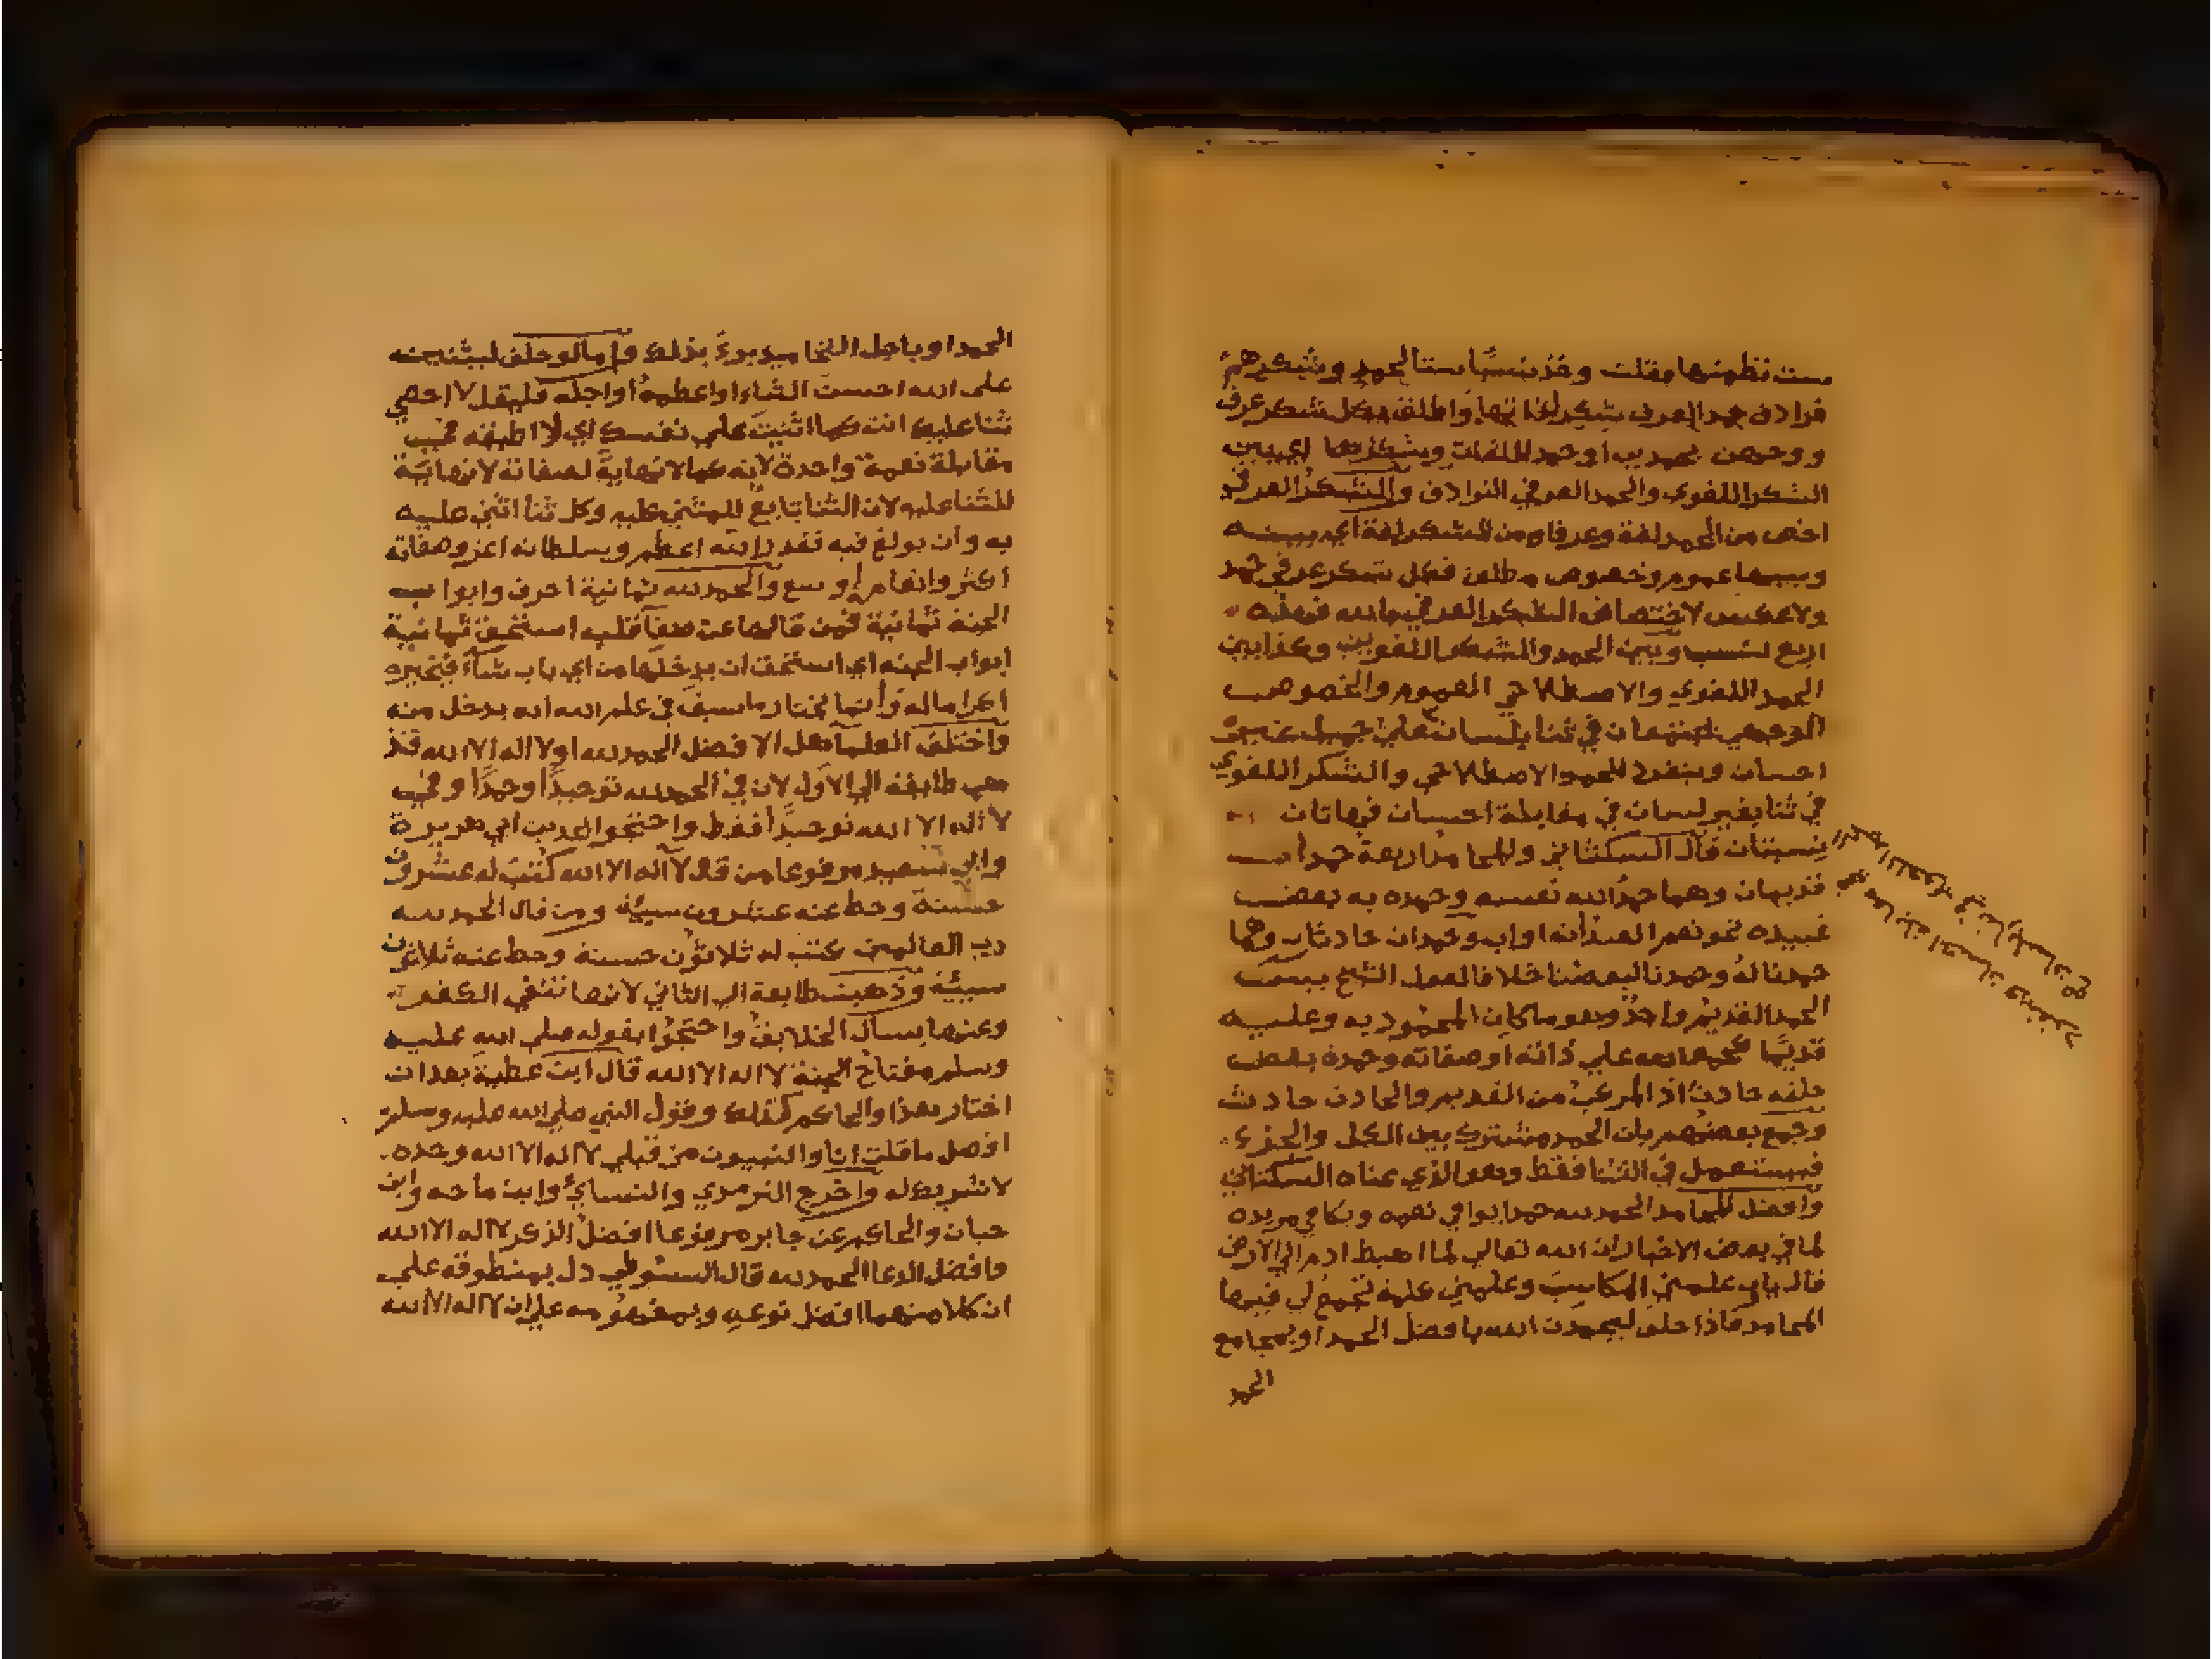 ست نظمتها فقلت وخذ نسبا ستا لحمد وشكرهم
ترادف حمد العرف شكر لذا لغة واطلق بكل شكر عرف
الشكر اللغوي والحمد العرفي الترادف والشكر العرفي
اخص من الحمد لغة وعرفا ومن الشكر لغة اي بينه
وبينها عموم وخصوص مطلق فكل شكر عرفي حمد
ولا عكس لاختصاص الشكر العرفي بالله فهذه
اربع نسب وبين الحمد والشكر اللغويين وكذا بين
الحمد اللغوي والاصطلاحي العموم والخصوص
الوجهي فيجتمعان في ثنا بلسان على جميل غير
احسان وينفرد الحمد الاصطلاحي والشكر اللغوي
في ثنا بغير لسان في مقابلة احسان فهاتان
نسبتان قال السكتاني والمحامد اربعة حمدان
قديمان وهما حمد الله نفسه وحمده به بعض
عبيده نحو نعم العبد انه اواب وحمدان حادثان وهما
حمدنا له وحمدنا لبعضنا خلافا لعمل الشيخ
الحمد القديم واحد وهو ما كان المحمود به وعليه
قديما كحمد الله على ذاته او صفاته وحمده بعض
خلقه حادث اذ المركب من القديم والحادث حادث
وجمع بعضهم بان الحمد مشترك بين الكل والجزء
فيستعمل في الثنا فقط وهو الذي عناه السكتاني
وافضل المحامد الحمد لله حمدا يوافي نعمه ويكافي مزيده
لما في بعض الاخبار ان الله تعالى لما اهبط ادم الى الارض
قال يا رب علمني المكاسب وعلمني علمة تجمع لي فيها
المحامد فاذا حلف ليحمدن الله بافضل الحمد او بمجامع
الحمد
الحمد او باجل التحاميد برئ بذلك واما لو حلف ليثنين
على الله احسن الثناء او اعظمه او اجله فليقل لا احصي
ثنا عليك انت كما اثنيت على نفسك اي لا اطيقه في
مقابلة نعمة واحدة لانه كما لا نهاية لصفاته لا نهاية
للثنا عليه لان الثنا تابع للمثني عليه وكل ثنا اثني عليه
به وان بولغ فيه فقدر الله اعظم وسلطانه اعز وصفاته
اكثر وانعامه اوسع والحمد لله ثمانية احرف وابواب
الجنة ثمانية فمن قالها عن صفا قلب استحق ثمانية
ابواب الجنة اي استحق ان يدخلها من اي باب شاء فيخير
اكراما له وانما يختار ما سبق في علم الله انه يدخل منه
واختلف العلما هل الافضل الحمد لله او لا اله الا الله
طايفة الي الاول لان في الحمد لله توحيدا وحمدا وفي
لا اله الا الله توحيدا فقط واحتجوا بحديث ابي هريرة
وابي سعيد مرفوعا من قال لا اله الا الله كتبت له عشرون
حسنة وحط عنه عشرون سيئة ومن قال الحمد لله
رب العالمين كتب له ثلاثون حسنة وحط عنه ثلاثون
سيئة وذهبت طايفة الى الثاني لانها تنفي الكفر
وعنها يسال الخلايق واحتجوا بقوله صلى الله عليه
وسلم مفتاح الجنة لا اله الا الله قال ابن عطية بعد ان
اختار هذا والحاكم كذلك وقول النبي صلى الله عليه وسلم
افضل ما قلت انا والنبيون من قبلي لا اله الا الله وحده
لا شريك له واخرج الترمذي والنسائي وابن ماجه وابن
حبان والحاكم عن جابر مرفوعا افضل الذكر لا اله الا الله
وافضل الدعا الحمد لله قال السيوطي دل بمنطوقه على
ان كلا منهما افضل نوعه وبمفهومه على ان لا اله الا الله